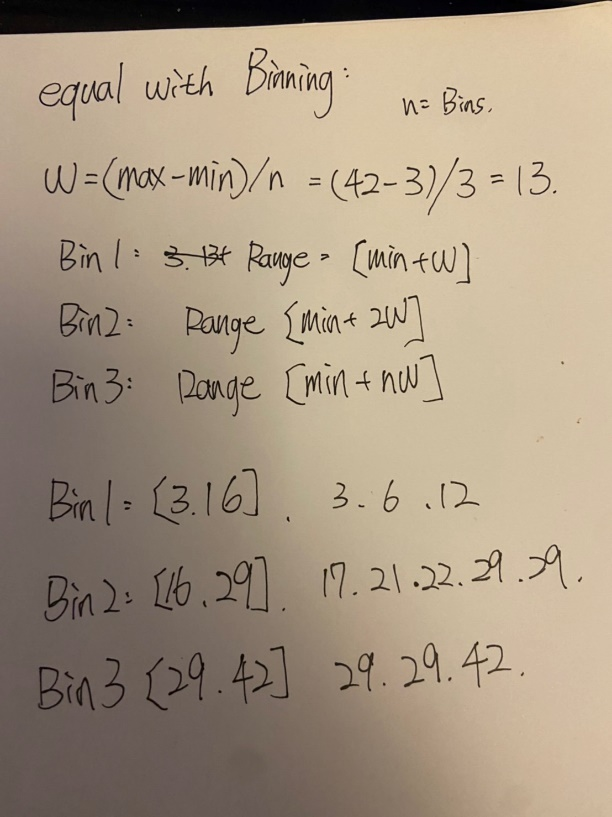 equal with Binning:
n= Bins.
W=(max-min)/n =(42-3)/3=13.
Bin1: Range= [min+W]
Bin2: Range [min+ 2W]
Bin3: Range [min+nW]
Bin1=[3.16]. 3.6.12
Bin2:[16.29]. 17.21.22.29.29.
Bin3 [29.42] 29.29.42.